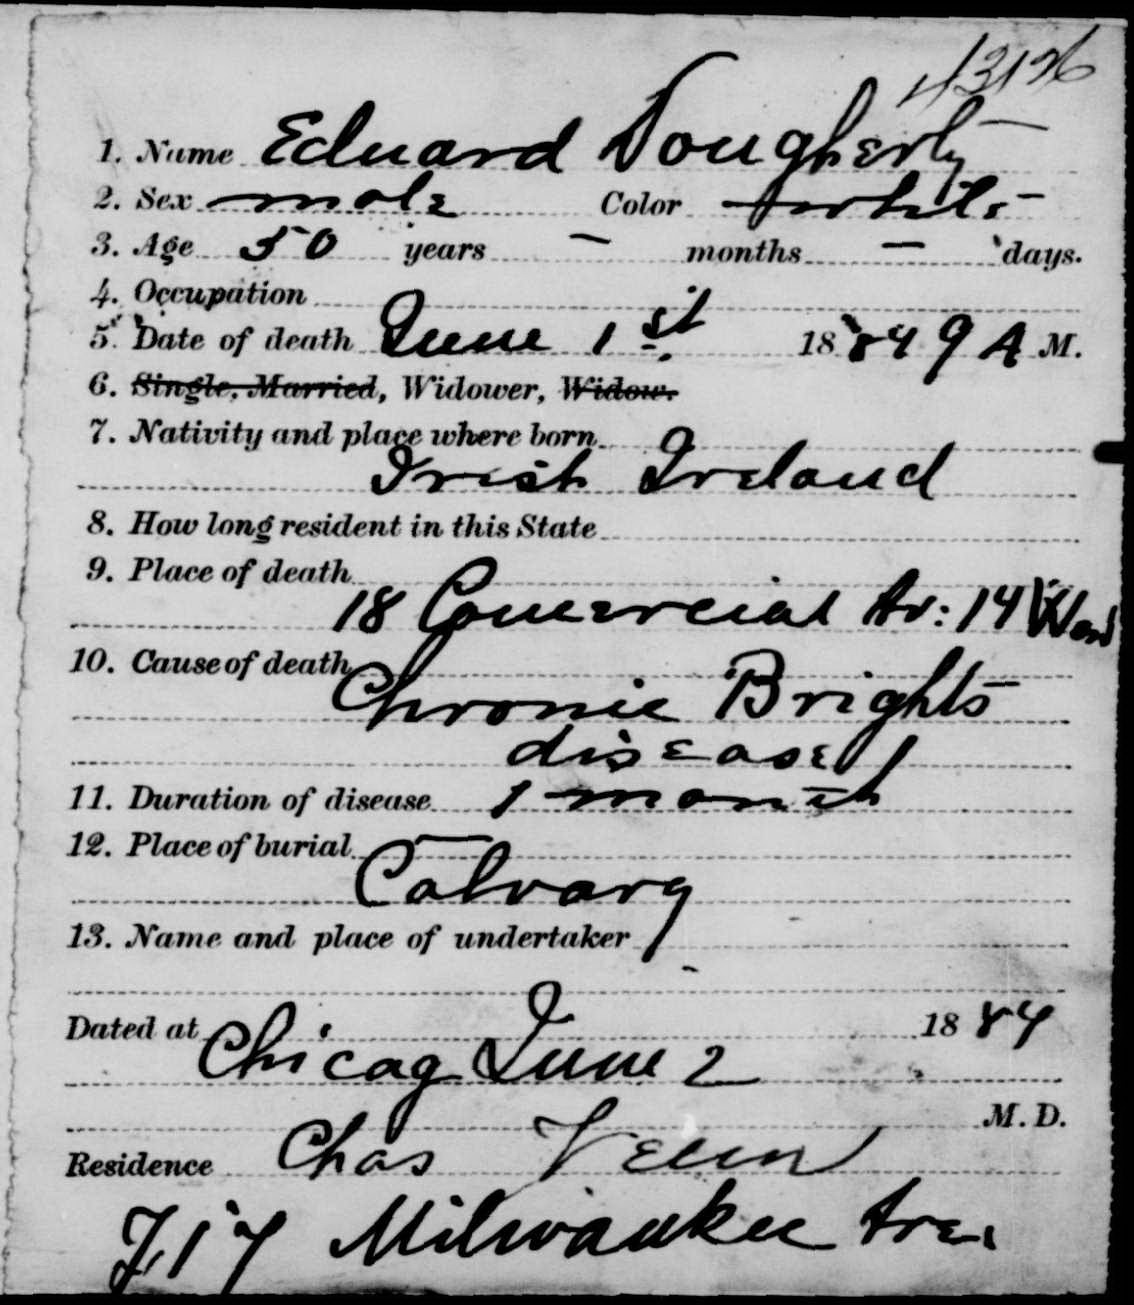 43126
1. Name Eduard Dougherty
2. Sex male Color white
3. Age 50 years – months – days.
4. Occupation
5. Date of death June 1st 1884 9 A M.
6. Single, Married, Widower, Widow.
7. Nativity and place where born
Irish Ireland
8. How long resident in this State
9. Place of death
18 Comercial Av: 14 Ward
10. Cause of death
Chronic Brights
disease
11. Duration of disease 1 month
12. Place of burial
Calvary
13. Name and place of undertaker
Dated at 1884
Chicag June 2
M. D.
Residence Chas
Milwaukee Ave.